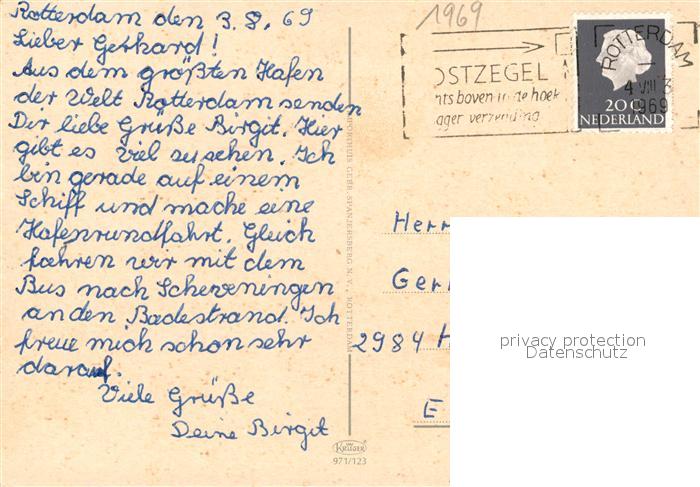 Rotterdam den 3.8.69
Lieber Gerhard!
Aus dem größten Hafen
der Welt Rotterdam senden
Dir liebe Grüße Birgit. Hier
gibt es viel zu sehen. Ich
bin gerade auf einem
Schiff und mache eine
Hafenrundfahrt. Gleich
fahren wir mit dem
Bus nach Scheveningen
an den Badestrand. Ich
freue mich schon sehr
darauf.
Viele Grüße
Deine Birgit
1969
OSTZEGEL
hts boven in de hoek
ager verzending
ROTTERDAM
4 VIII
1969
20 C
NEDERLAND
GEBR. SPANJERSBERG N.V., ROTTERDAM
Herr
Ger
2984 H
E
privacy protection
Datenschutz
KRÜGER
971/123